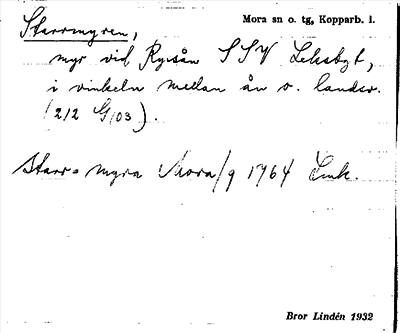 Starrmyren,
Mora sn o. tg, Kopparb. l.
myr vid Ryssån SSV Leksbgt,
i vinkeln mellan ån o. landsv.
(212 G/03).
Starr= myra Mora/g 1764 Lmk.
Bror Lindén 1932